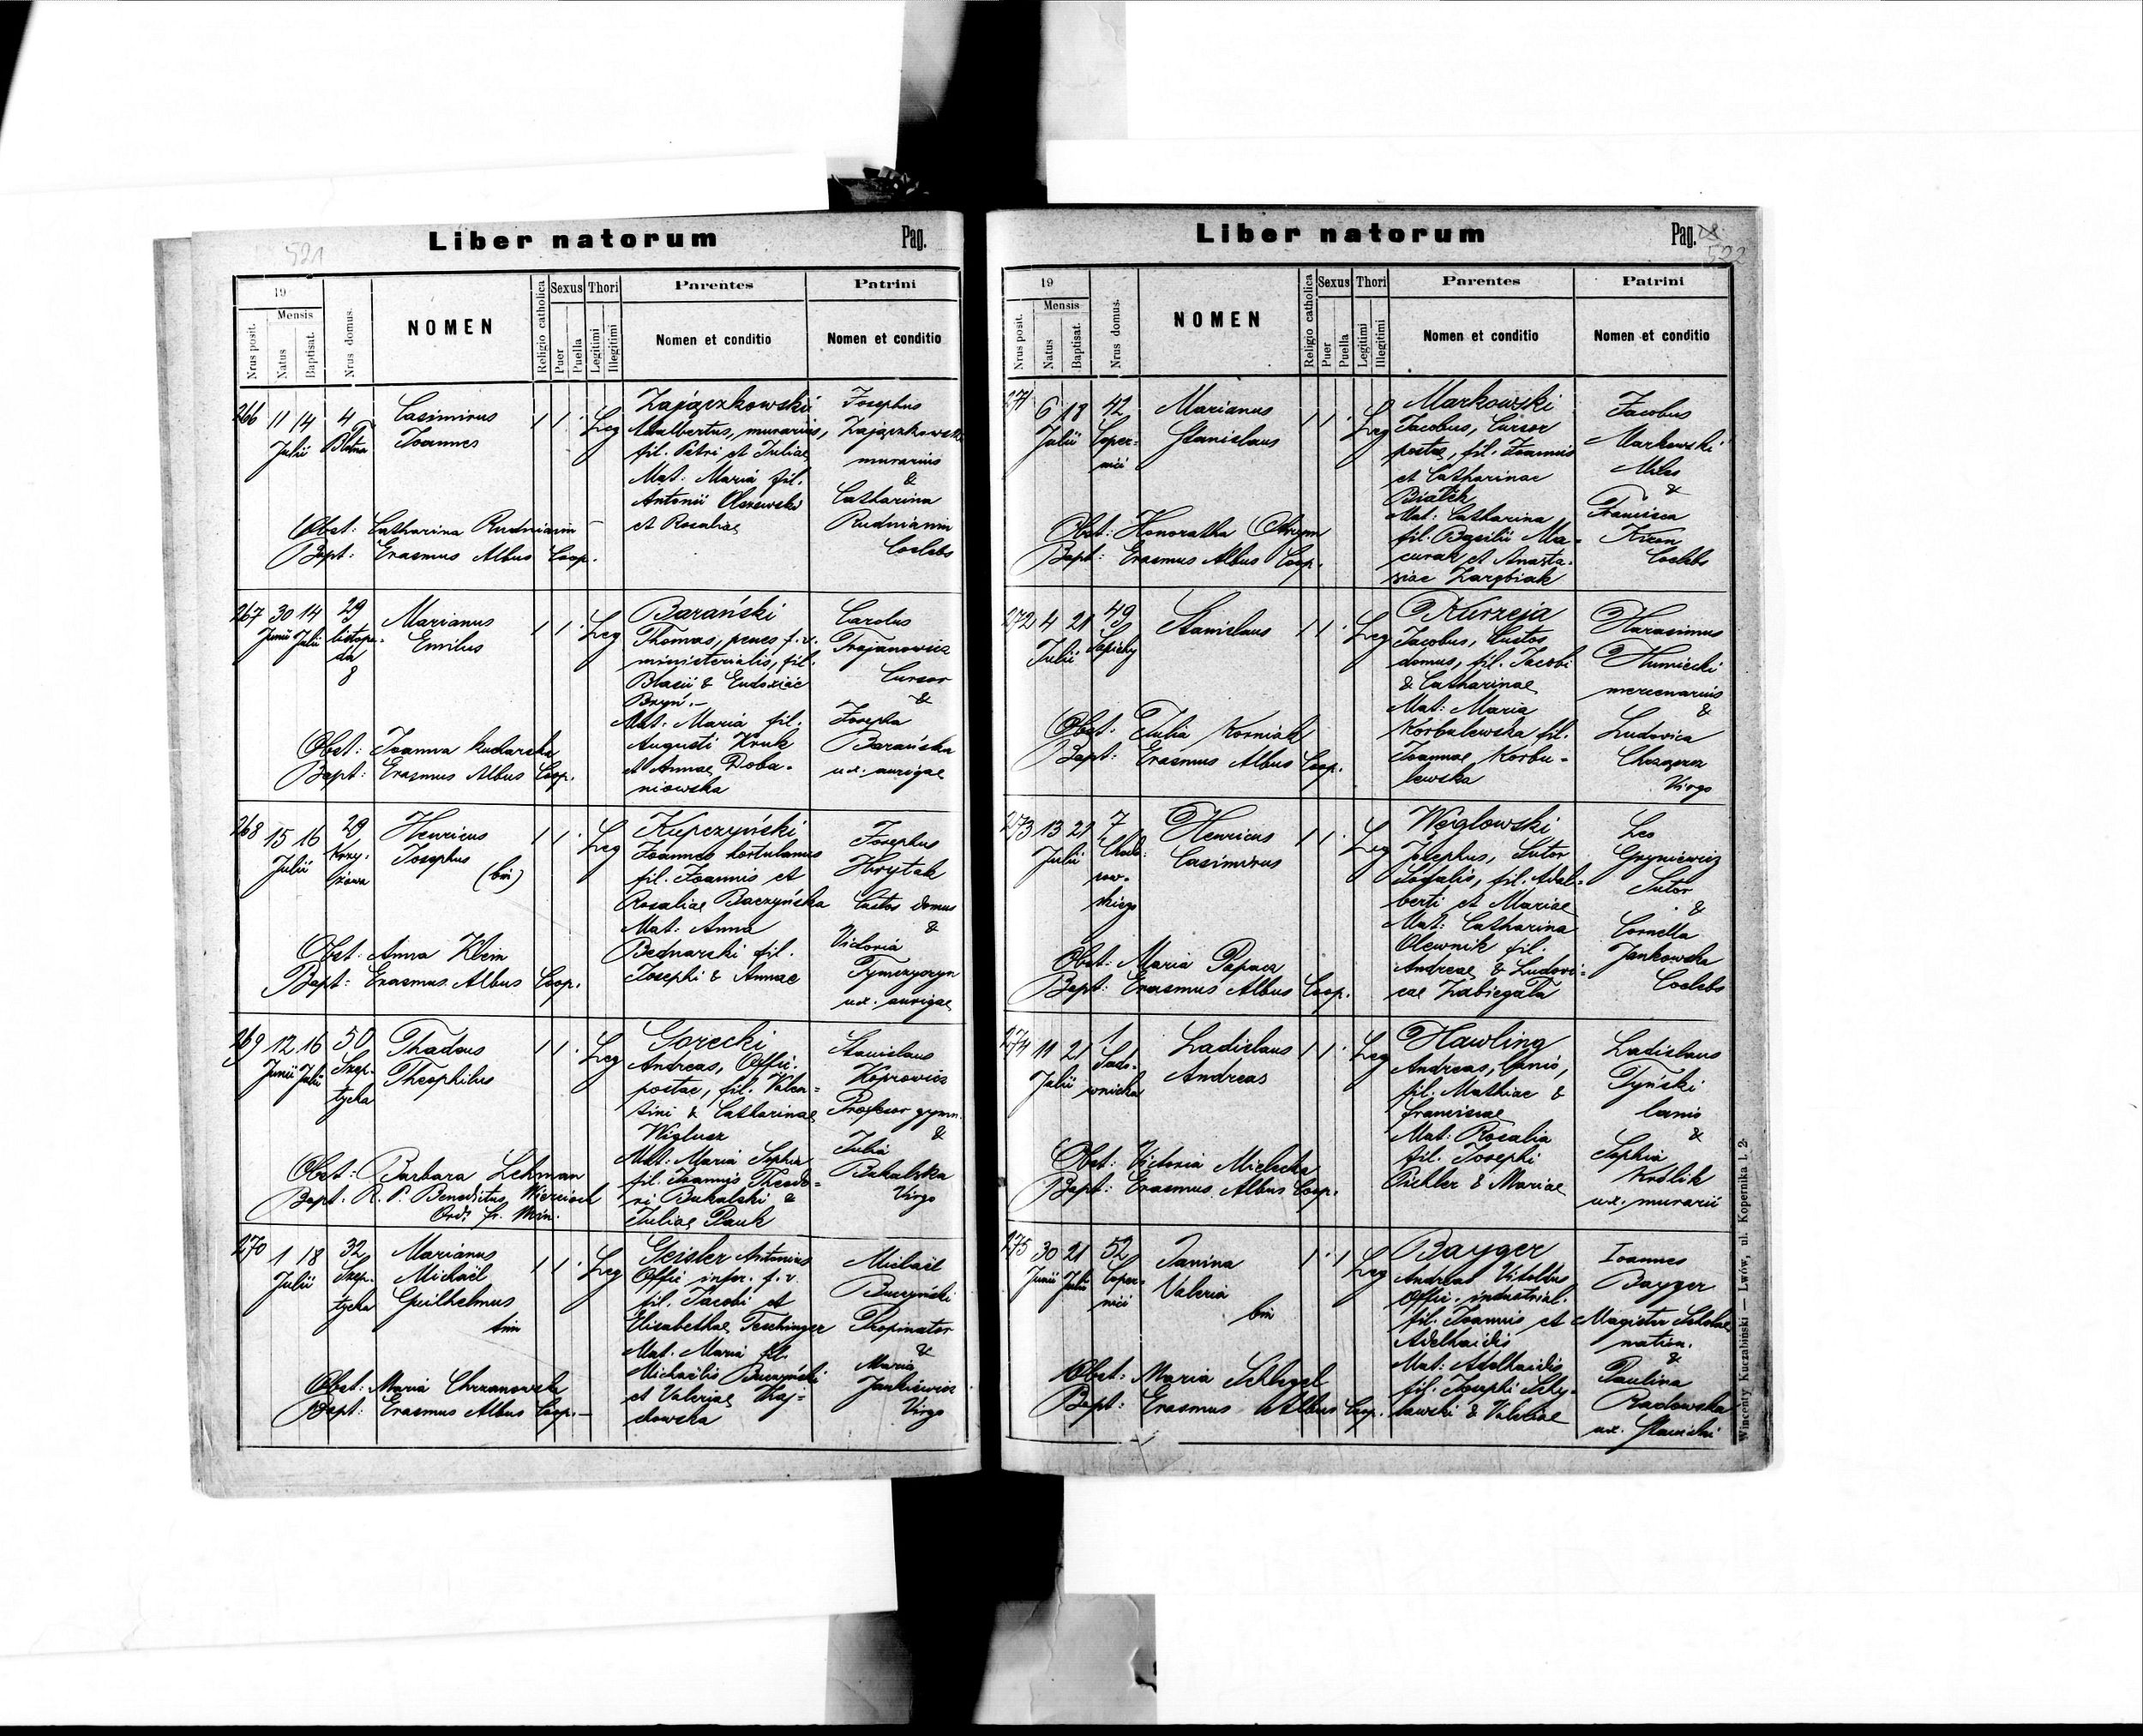 521
Liber natorum
Pag.
19
Mensis
Nrus posit.
Natus
Baptisat.
Nrus domus.
NOMEN
Religio catholica
Sexus
Puer
Puella
Thori
Legitimi
Illegitimi
Parentes
Nomen et conditio
Patrini
Nomen et conditio
266 11 14 4
Julii
Casimirus
Joannes
1 1 Leg
Zajączkowski
Adalbertus, murarius,
fil. Petri et Juliae
Mat. Maria fil.
Antonii Olszewski
et Rosaliae
Josephus
Zajączkowski
murarius
&
Catharina
Rudnianin
Coelebs
Obst: Catharina Rudnianin
Bapt: Erasmus Albus Coop.
267 30 14 29
Junii Julii Listopa-
da
8
Marianus
Emilus
1 1 Leg
Barański
Thomas, penes f. v.
ministerialis, fil.
Blasii & Eudoxiae
Bryń.-
Mat. Maria fil.
Augusti Kruk
et Annae Doba-
niowska
Carolus
Trojanowicz
Cursor
&
Josepha
Barańska
ux. aurigae
Obst: Joanna Kucharska
Bapt: Erasmus Albus Coop.
268 15 16 29
Julii Krzy-
żowa
Henricus
Josephus
(bin)
1 1 Leg
Kupczyński
Joannes hortulanus
fil. Joannis et
Rosaliae Baczyńska
Mat: Anna
Bednarski fil.
Josephi & Annae
Josephus
Hrytak
Custos domus
&
Victoria
Tymczyszyn
ux. aurigae
Obst: Anna Klein
Bapt: Erasmus Albus Coop.
269 12 16 50
Junii Julii Szep-
tycka
Thadeus
Theophilus
1 1 Leg
Gorecki
Andreas, Offic.
postae, fil. Valen-
tini & Catharinae
Mat: Maria Sophia
fil. Joannis Theodo-
ri Bukalski &
Juliae Pauk
Stanislaus
Koprowicz
Professor gymn.
&
Julia
Bukalska
Virgo
Obst: Barbara Lehman
Bapt. R. P. Benedictus
Ord. fr. Min.
270 1 18 32
Julii Szep-
tycka
Marianus
Michaël
Guilhelmus
1 1 Leg
Geisler Antonius
Offic infer. f. v.
fil. Jacobi et
Elisabethae Teschinger
Mat. Maria fil.
Michaëlis Buczyński
et Valeriae Kaj-
dowska
Michaël
Buczyński
Propinator
&
Maria
Jankiewicz
Virgo
Obst: Maria Chrzanowska
Bapt: Erasmus Albus Coop.-
Liber natorum
Pag.
522
19
Mensis
Nrus posit.
Natus
Baptisat.
Nrus domus.
NOMEN
Religio catholica
Sexus
Puer
Puella
Thori
Legitimi
Illegitimi
Parentes
Nomen et conditio
Patrini
Nomen et conditio
271 6 18 42
Julii Coper-
nici
Marianus
Stanislaus
1 1 Leg
Markowski
Jacobus, Cursor
postae, fil. Joannis
et Catharinae
Białek
Mat: Catharina
fil. Basilii Ma-
curak et Anasta-
siae Zarębiak
Jacobus
Markowski
Miles
&
Francisca
Kizon
Coelebs
Obst: Honoratha
Bapt: Erasmus Albus Coop.
272 4 21 49
Julii Sapiehy
Stanislaus
1 1 Leg
Kurzeja
Jacobus, Custos
domus, fil. Jacobi
& Catharinae
Mat: Maria
Korbulewska fil.
Joannae Korbu-
lewska
Harasimus
Humiecki
mercenarius
&
Ludovica
Virgo
Obst. Julia Korniak
Bapt: Erasmus Albus Coop.
273 13 21 7
Julii Chodo-
row-
skiego
Henricus
Casimirus
1 1 Leg
Węglowski
Josephus, Sutor
Sodalis, fil. Adal-
berti et Mariae
Mat: Catharina
Olewnik fil.
Andreae & Ludovi-
cae Zabiegała
Leo
Gryniewicz
Sutor
&
Cornelia
Jankowska
Coelebs
Obst: Maria Papacz
Bapt: Erasmus Albus Coop.
274 11 21 1
Julii Sado-
wnicka
Ladislaus
Andreas
1 1 Leg
Hawling
Andreas, Lanio,
fil. Mathiae &
Franciscae
Mat: Rosalia
fil. Josephi
Pichler & Mariae
Ladislaus
Tyński
Lanio
&
Sophia
Królik
ux. murarii
Obst: Victoria Mielecka
Bapt: Erasmus Albus Coop.
275 30 21 52
Junii Julii Coper-
nici
Janina
Valeria
bin
1 1 Leg
Bayger
Andreas Vitoldus
Offic. industrial.
fil. Joannis et
Adelhaidis
Mat: Adelhaidis
fil. Josephi Schy-
lawski & Valeriae
Ioannes
Bayger
Magister Scholae
&
Paulina
Radowska
ux.
Obst: Maria Schlegel
Bapt: Erasmus Albus Coop.
Wincenty Kuczabiński — Lwów, ul. Kopernika l. 2